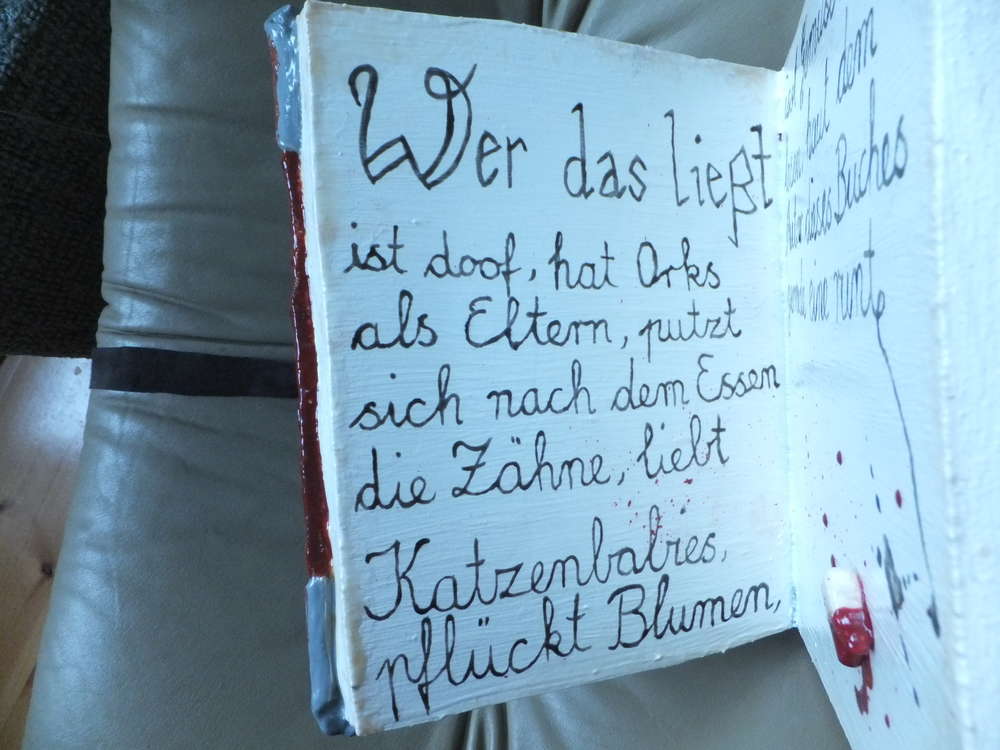 Wer das ließt
ist doof, hat Orks
als Eltern, putzt
sich nach dem Essen
die Zähne, liebt
Katzenbabies,
pflückt Blumen,
Gemüse
haut dem
dieses Buches
eine runt